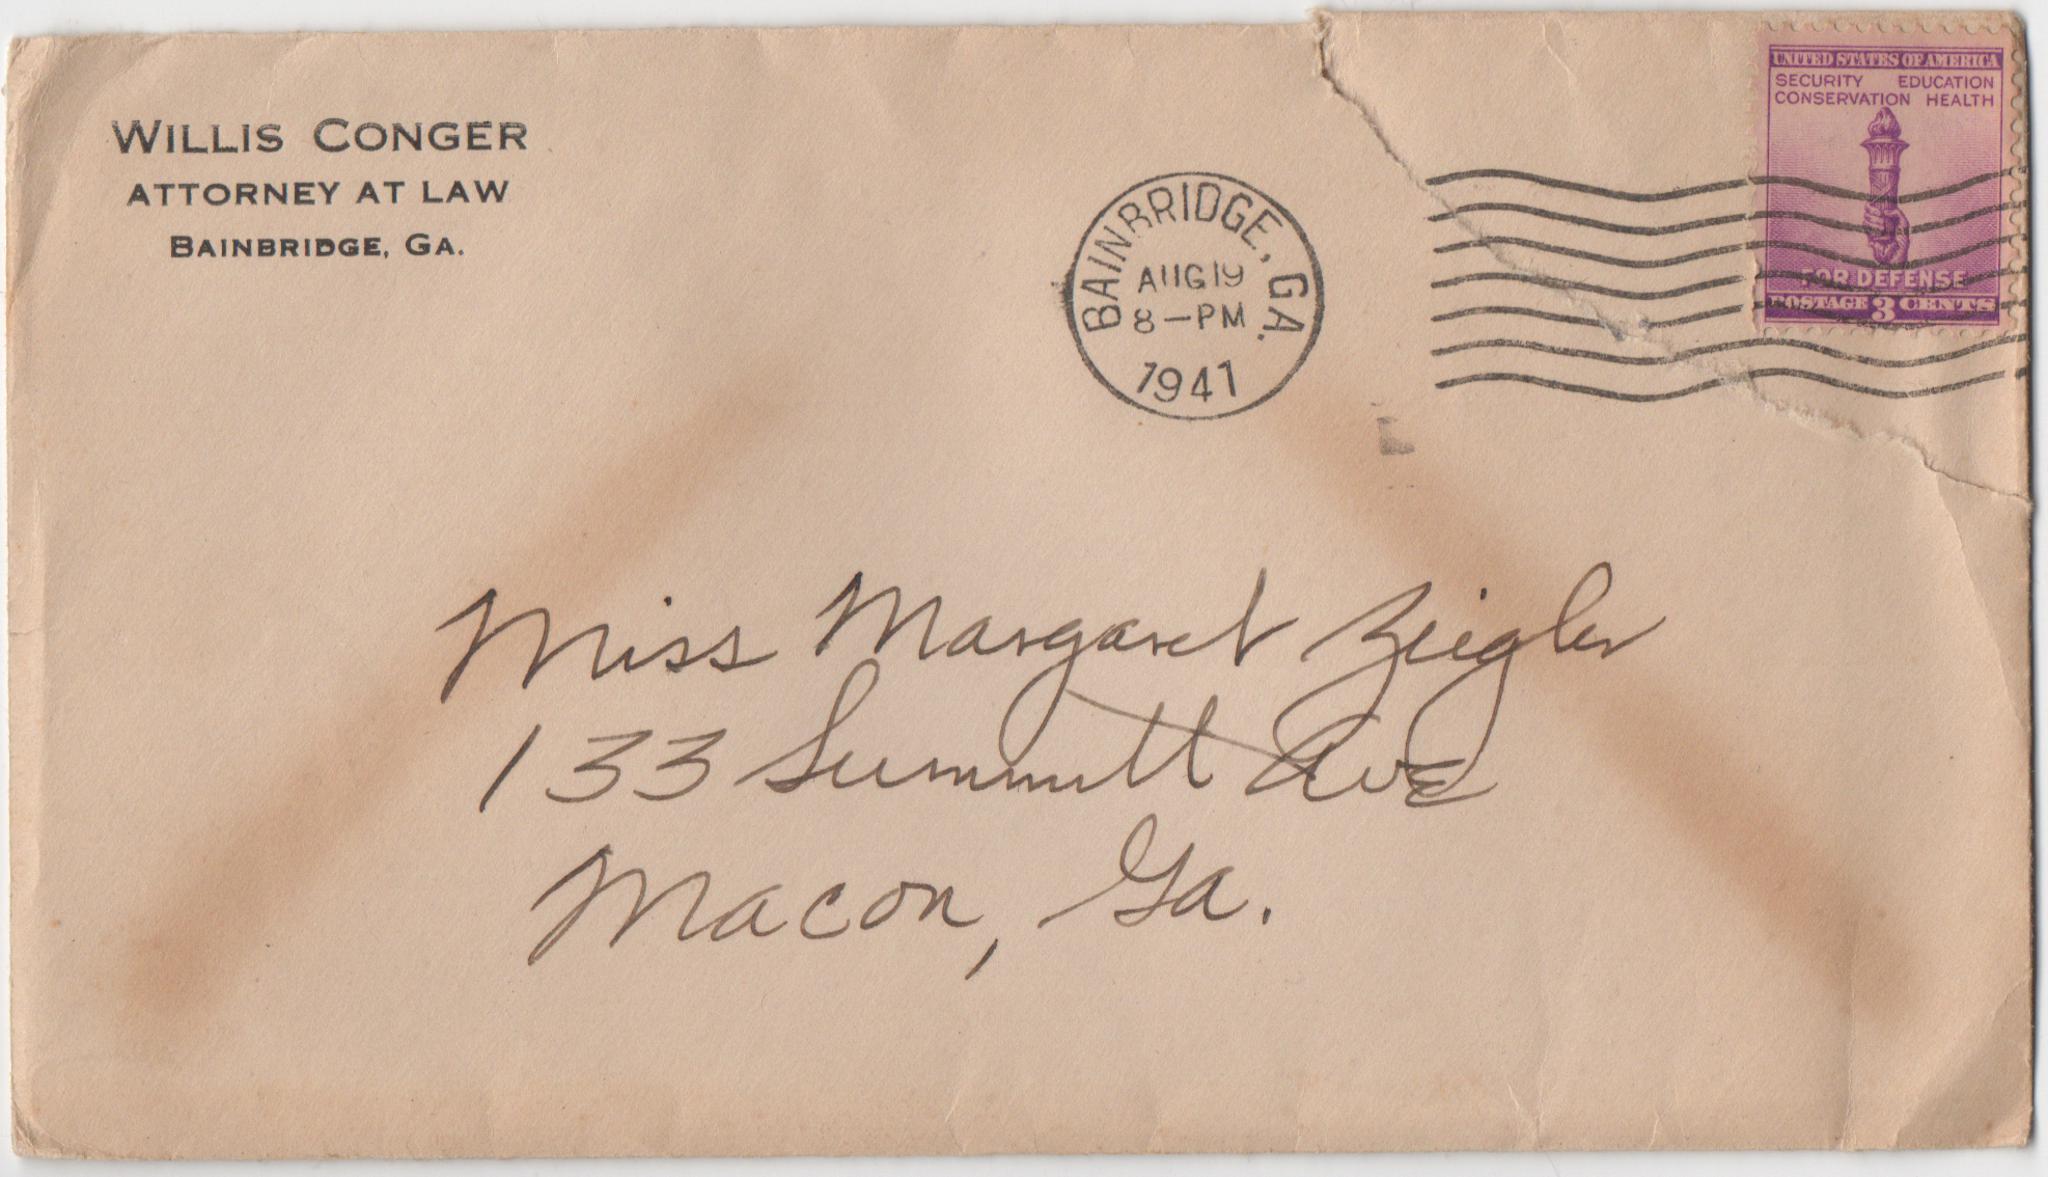 WILLIS CONGER
ATTORNEY AT LAW
BAINBRIDGE, GA.
BAINBRIDGE, GA.
AUG 19
8-PM
1941
UNITED STATES OF AMERICA
SECURITY EDUCATION
CONSERVATION HEALTH
FOR DEFENSE
POSTAGE 3 CENTS
Miss Margaret Ziegler
133 Summitt Ave
Macon, Ga.